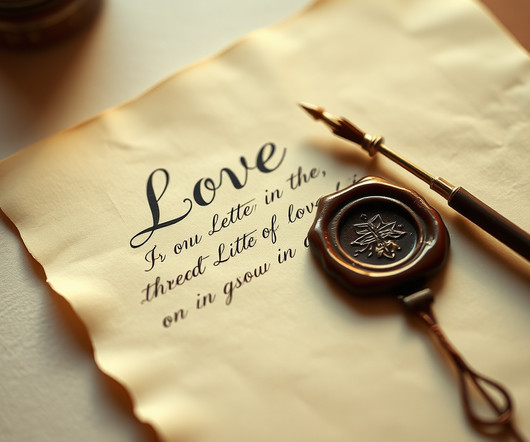 Love
Ir ou Lette in the,
threed Litte of love
on in gsow in